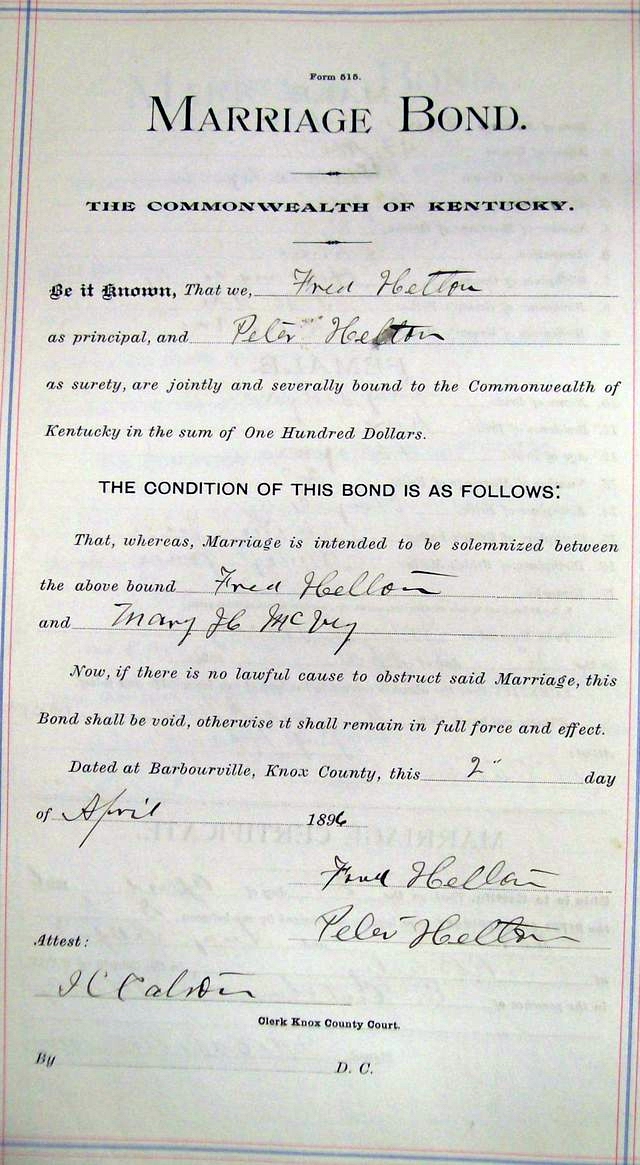 Form 515.
MARRIAGE BOND.
THE COMMONWEALTH OF KENTUCKY.
Be it Known, That we, Fred Helton
as principal, and Peter Helton
as surety, are jointly and severally bound to the Commonwealth of
Kentucky in the sum of One Hundred Dollars.
THE CONDITION OF THIS BOND IS AS FOLLOWS:
That, whereas, Marriage is intended to be solemnized between
the above bound Fred Helton
and Mary H McVey
Now, if there is no lawful cause to obstruct said Marriage, this
Bond shall be void, otherwise it shall remain in full force and effect.
Dated at Barbourville, Knox County, this 2" day
of April 1896
Fred Helton
Peter Helton
Attest:
Clerk Knox County Court.
By D. C.